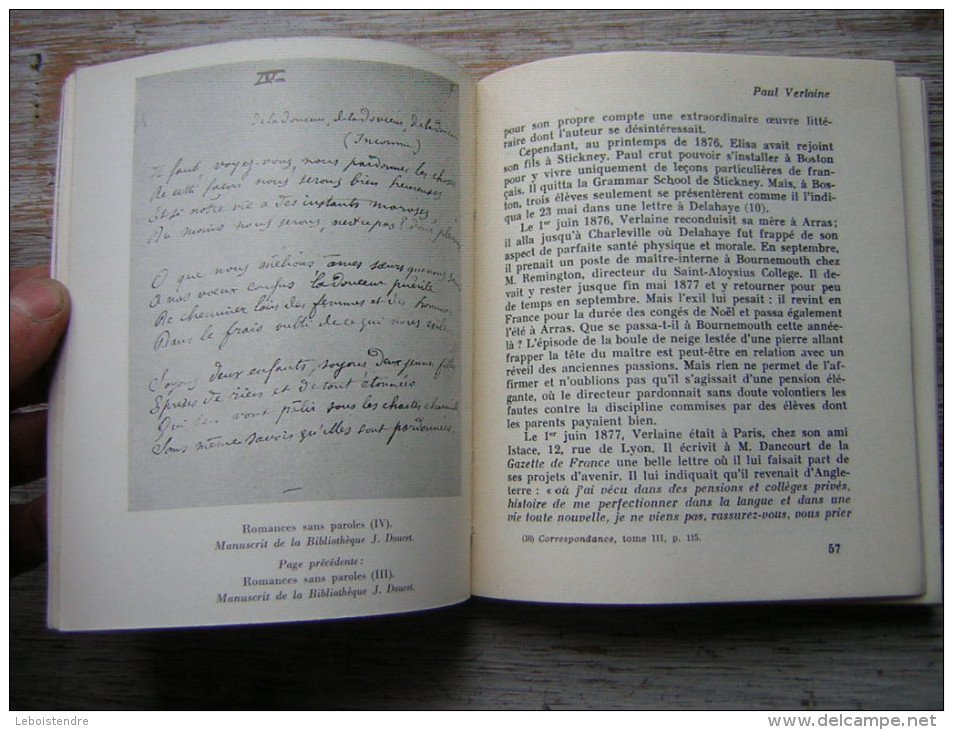 IV
de la douceur, de la douceur, de la douceur
(Inconnu)
Il faut, voyez-vous, nous pardonner les choses
De cette façon nous serons bien heureuses
Et si notre vie a des instants moroses
Du moins nous serons, n'est-ce pas? deux
O que nous mêlions âmes sœurs que nous
A nos vœux confus la douceur puérile
De cheminer loin des femmes et des hommes
Dans le frais oubli de ce qui nous exile.
Soyons deux enfants, soyons deux jeunes filles
Eprises de rien et de tout étonnées
Qui s'en vont pâlir sous les chastes
Sans même savoir qu'elles sont pardonnées.
Romances sans paroles (IV).
Manuscrit de la Bibliothèque J. Doucet.
Page précédente :
Romances sans paroles (III).
Manuscrit de la Bibliothèque J. Doucet.
Paul Verlaine
pour son propre compte une extraordinaire œuvre litté-
raire dont l'auteur se désintéressait.
Cependant, au printemps de 1876, Elisa avait rejoint
son fils à Stickney. Paul crut pouvoir s'installer à Boston
pour y vivre uniquement de leçons particulières de fran-
çais. Il quitta la Grammar School de Stickney. Mais, à Bos-
ton, trois élèves seulement se présentèrent comme il l'indi-
qua le 23 mai dans une lettre à Delahaye (10).
Le 1er juin 1876, Verlaine reconduisit sa mère à Arras ;
il alla jusqu'à Charleville où Delahaye fut frappé de son
aspect de parfaite santé physique et morale. En septembre,
il prenait un poste de maître-interne à Bournemouth chez
M. Remington, directeur du Saint-Aloysius College. Il de-
vait y rester jusque fin mai 1877 et y retourner pour peu
de temps en septembre. Mais l'exil lui pesait : il revint en
France pour la durée des congés de Noël et passa également
l'été à Arras. Que se passa-t-il à Bournemouth cette année-
là ? L'épisode de la boule de neige lestée d'une pierre allant
frapper la tête du maître est peut-être en relation avec un
réveil des anciennes passions. Mais rien ne permet de l'af-
firmer et n'oublions pas qu'il s'agissait d'une pension élé-
gante, où le directeur pardonnait sans doute volontiers les
fautes contre la discipline commises par des élèves dont
les parents payaient bien.
Le 1er juin 1877, Verlaine était à Paris, chez son ami
Istace, 12, rue de Lyon. Il écrivit à M. Dancourt de la
Gazette de France une belle lettre où il lui faisait part de
ses projets d'avenir. Il lui indiquait qu'il revenait d'Angle-
terre : « où j'ai vécu dans des pensions et collèges privés,
histoire de me perfectionner dans la langue et dans une
vie toute nouvelle, je ne viens pas, rassurez-vous, vous prier
(10) Correspondance, tome III, p. 115.
57
Leboistendre
www.delcampe.net